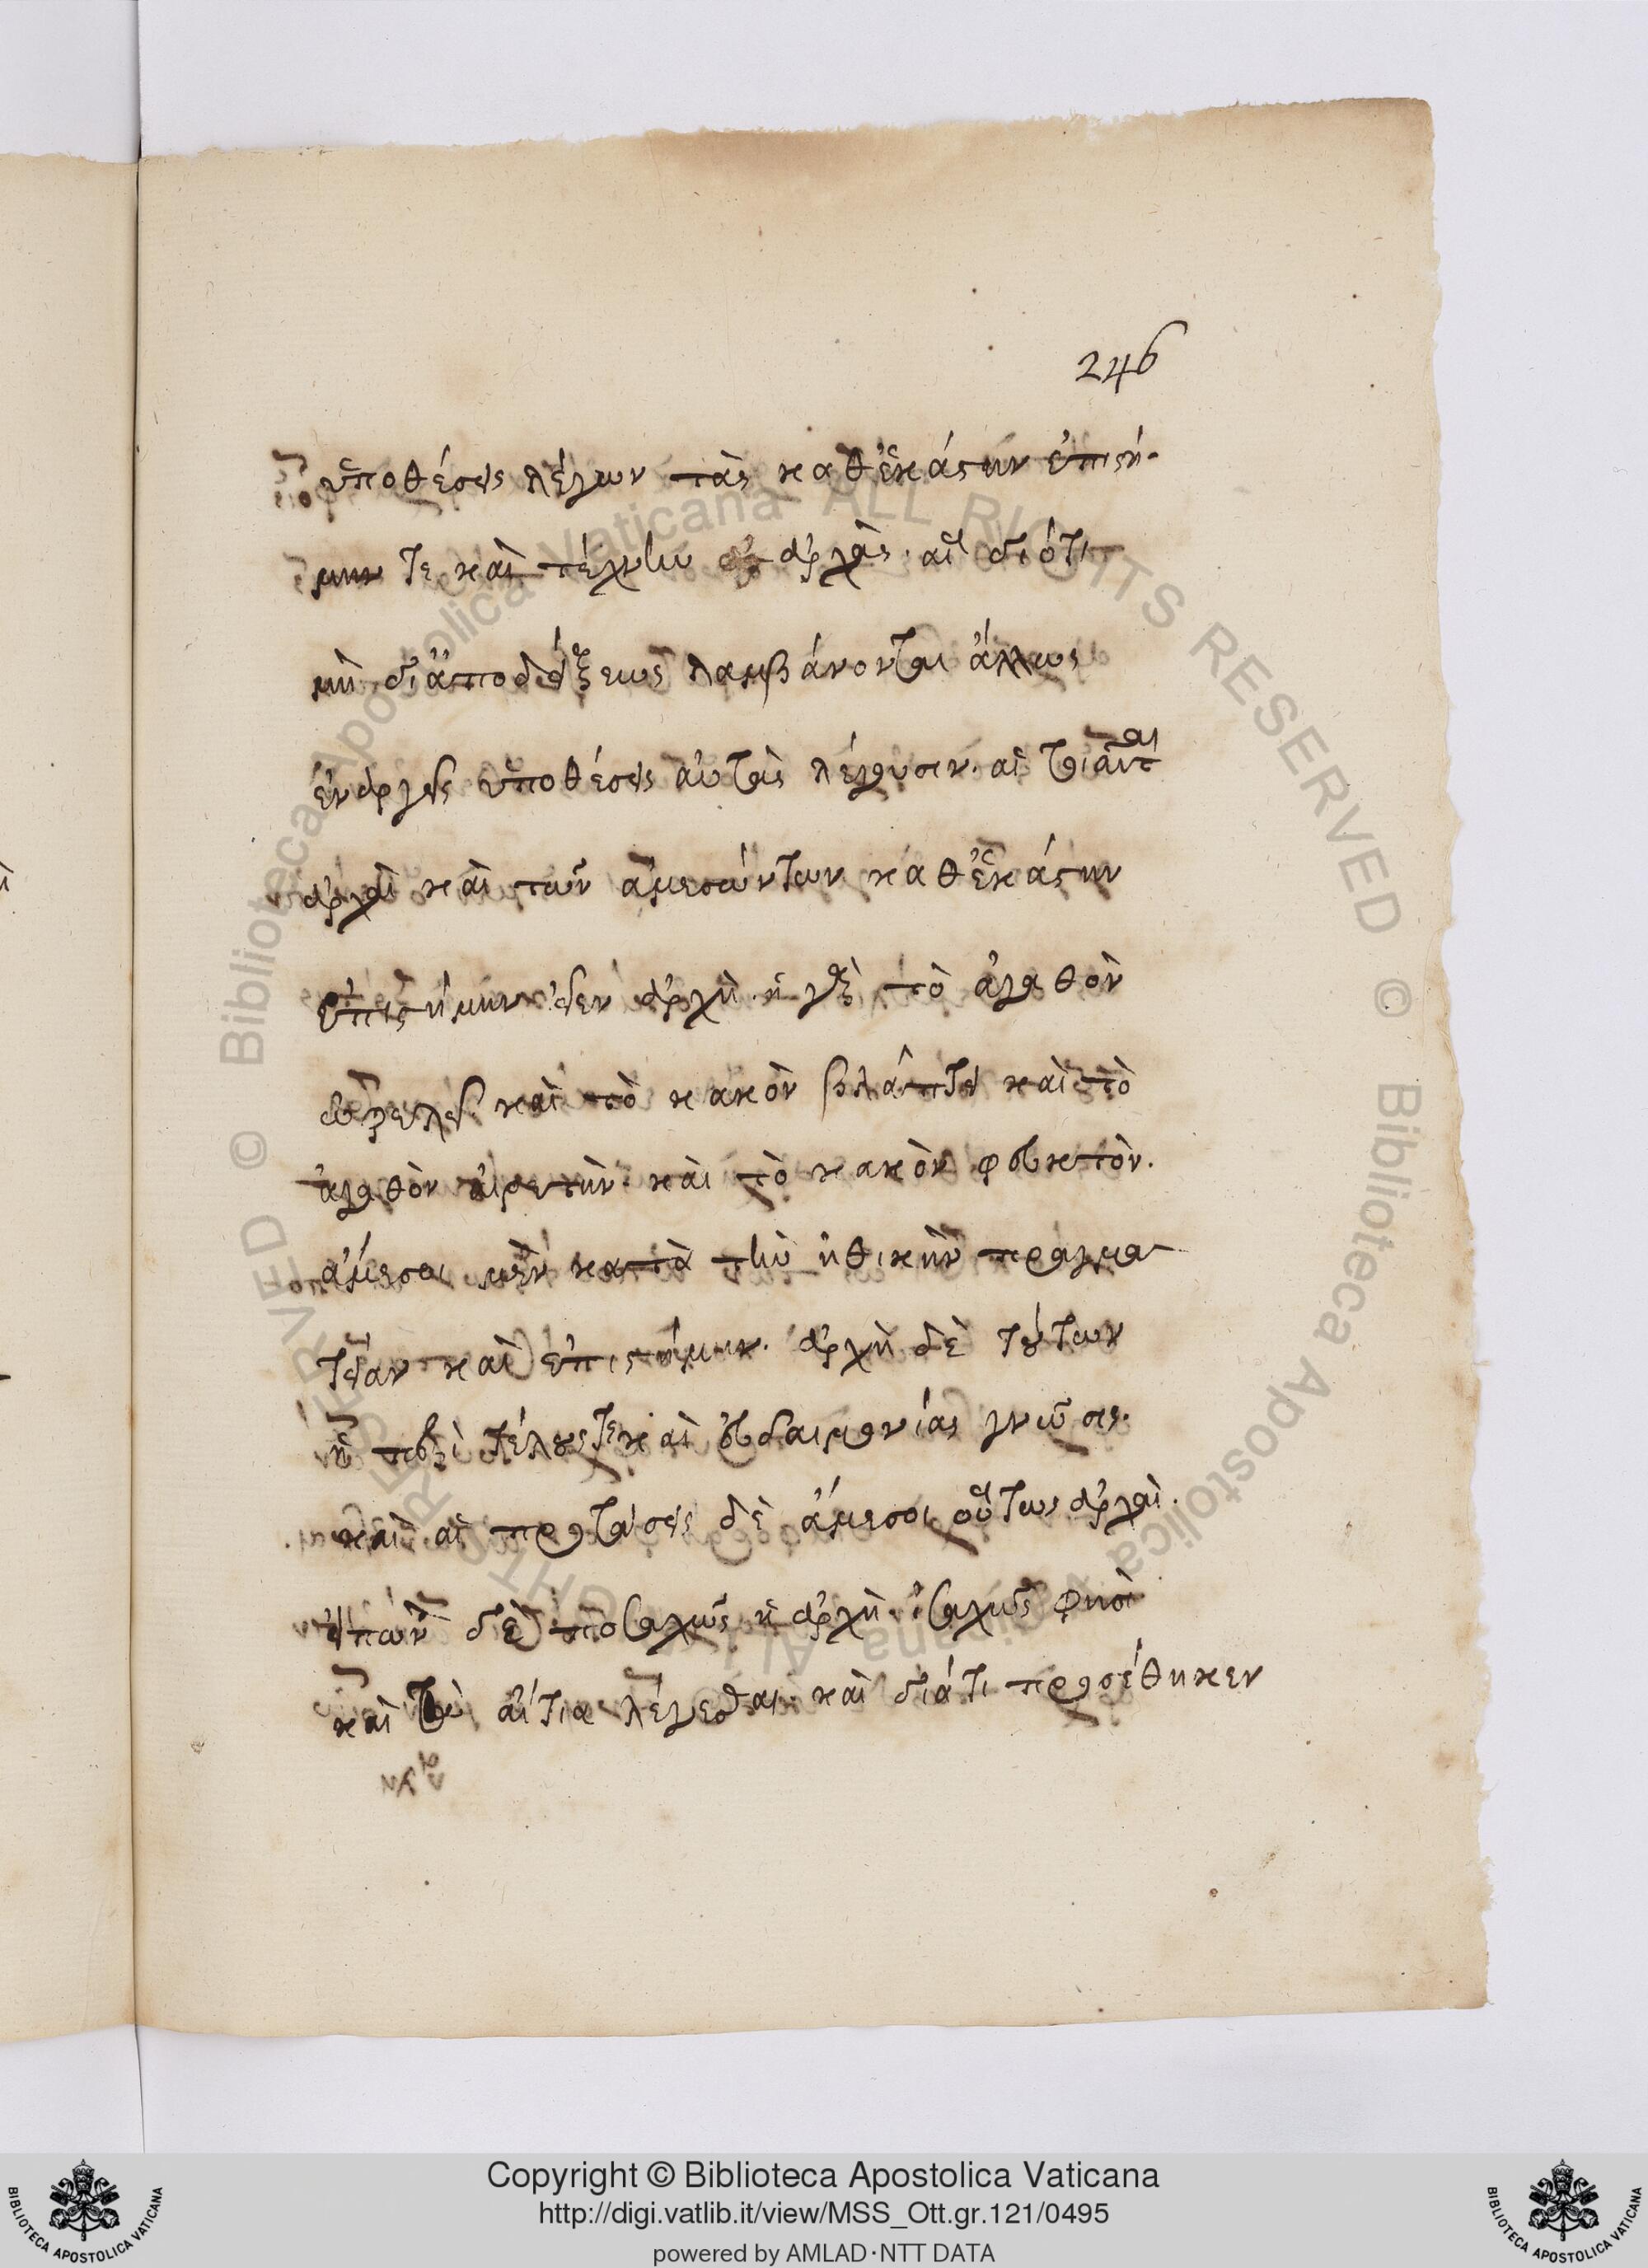 246
ὑποθέσεις λέγων τὰς καθ' ἑκάστην ἐπιστή-
μην τε καὶ τέχνην ἀρχὰς· αἳ διότι
μὴ δι' ἀποδείξεως λαμβάνονται ἄλλως
ἐναργεῖς ὑποθέσεις αὐτὰς λέγουσιν· αἱ τοιαῦται
ἀρχαὶ καὶ τῶν ἀμεσώντων καθ' ἑκάστην
ἐπιστήμην εἶεν ἀρχὴ· ἡ γὰρ τὸ ἀγαθὸν
ὠφελεῖ καὶ τὸ κακὸν βλάπτει καὶ τὸ
ἀγαθὸν αἱρετὴν καὶ τὸ κακὸν φευκτὸν.
ἄμεσοι μὲν κατὰ τὴν ἠθικὴν πραγμα-
τείαν καὶ ἐπιστήμην· ἀρχὴ δὲ τούτων
ἡ περὶ τέλους τε καὶ εὐδαιμονίας γνῶσις.
καὶ αἱ προτάσεις δὲ ἄμεσοι οὕτως ἀρχαὶ.
εἰπὼν δὲ ποσαχῶς ἡ ἀρχὴ· ἰσαχῶς φησὶ
καὶ τὰ αἴτια λέγεσθαι· καὶ διάτι προσέθηκεν
Copyright © Biblioteca Apostolica Vaticana
http://digi.vatlib.it/view/MSS_Ott.gr.121/0495
powered by AMLAD·NTT DATA
BIBLIOTECA APOSTOLICA VATICANA
BIBLIOTECA APOSTOLICA VATICANA
© Biblioteca Apostolica Vaticana ALL RIGHTS RESERVED © Biblioteca Apostolica Vaticana ALL RIGHTS RESERVED